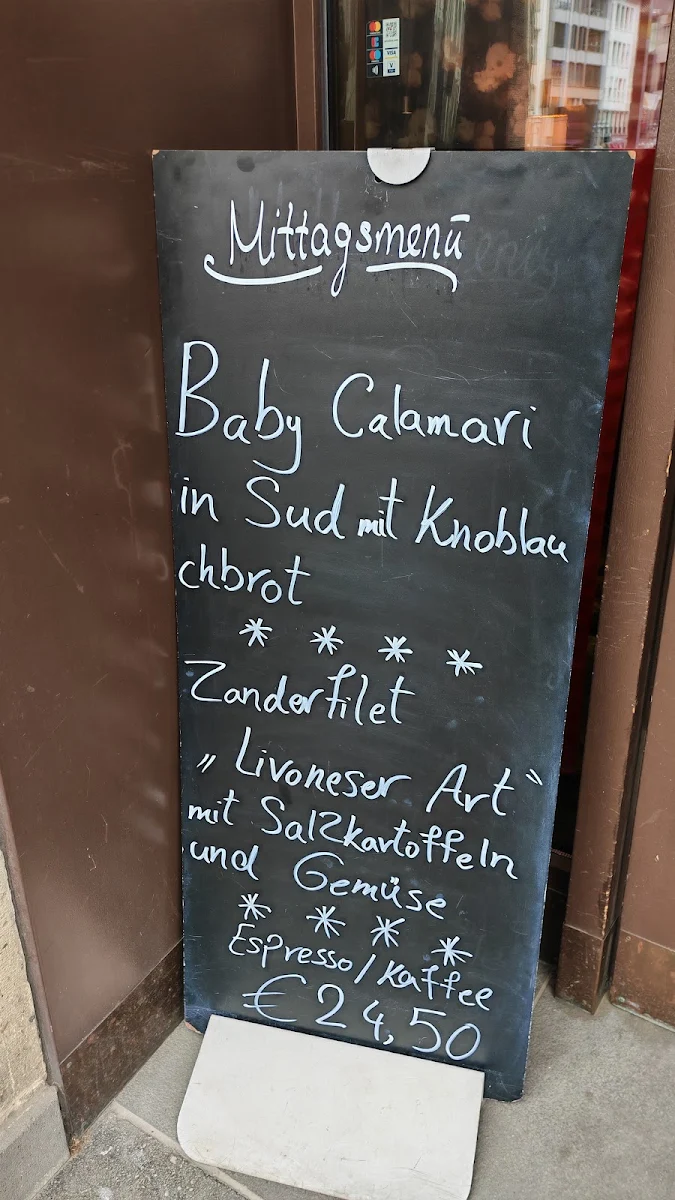 Mittagsmenü
Baby Calamari
in Sud mit Knoblau
chbrot
* * * *
Zanderfilet
„Livoneser Art"
mit Salzkartoffeln
und Gemüse
* * * *
Espresso/Kaffee
€24,50